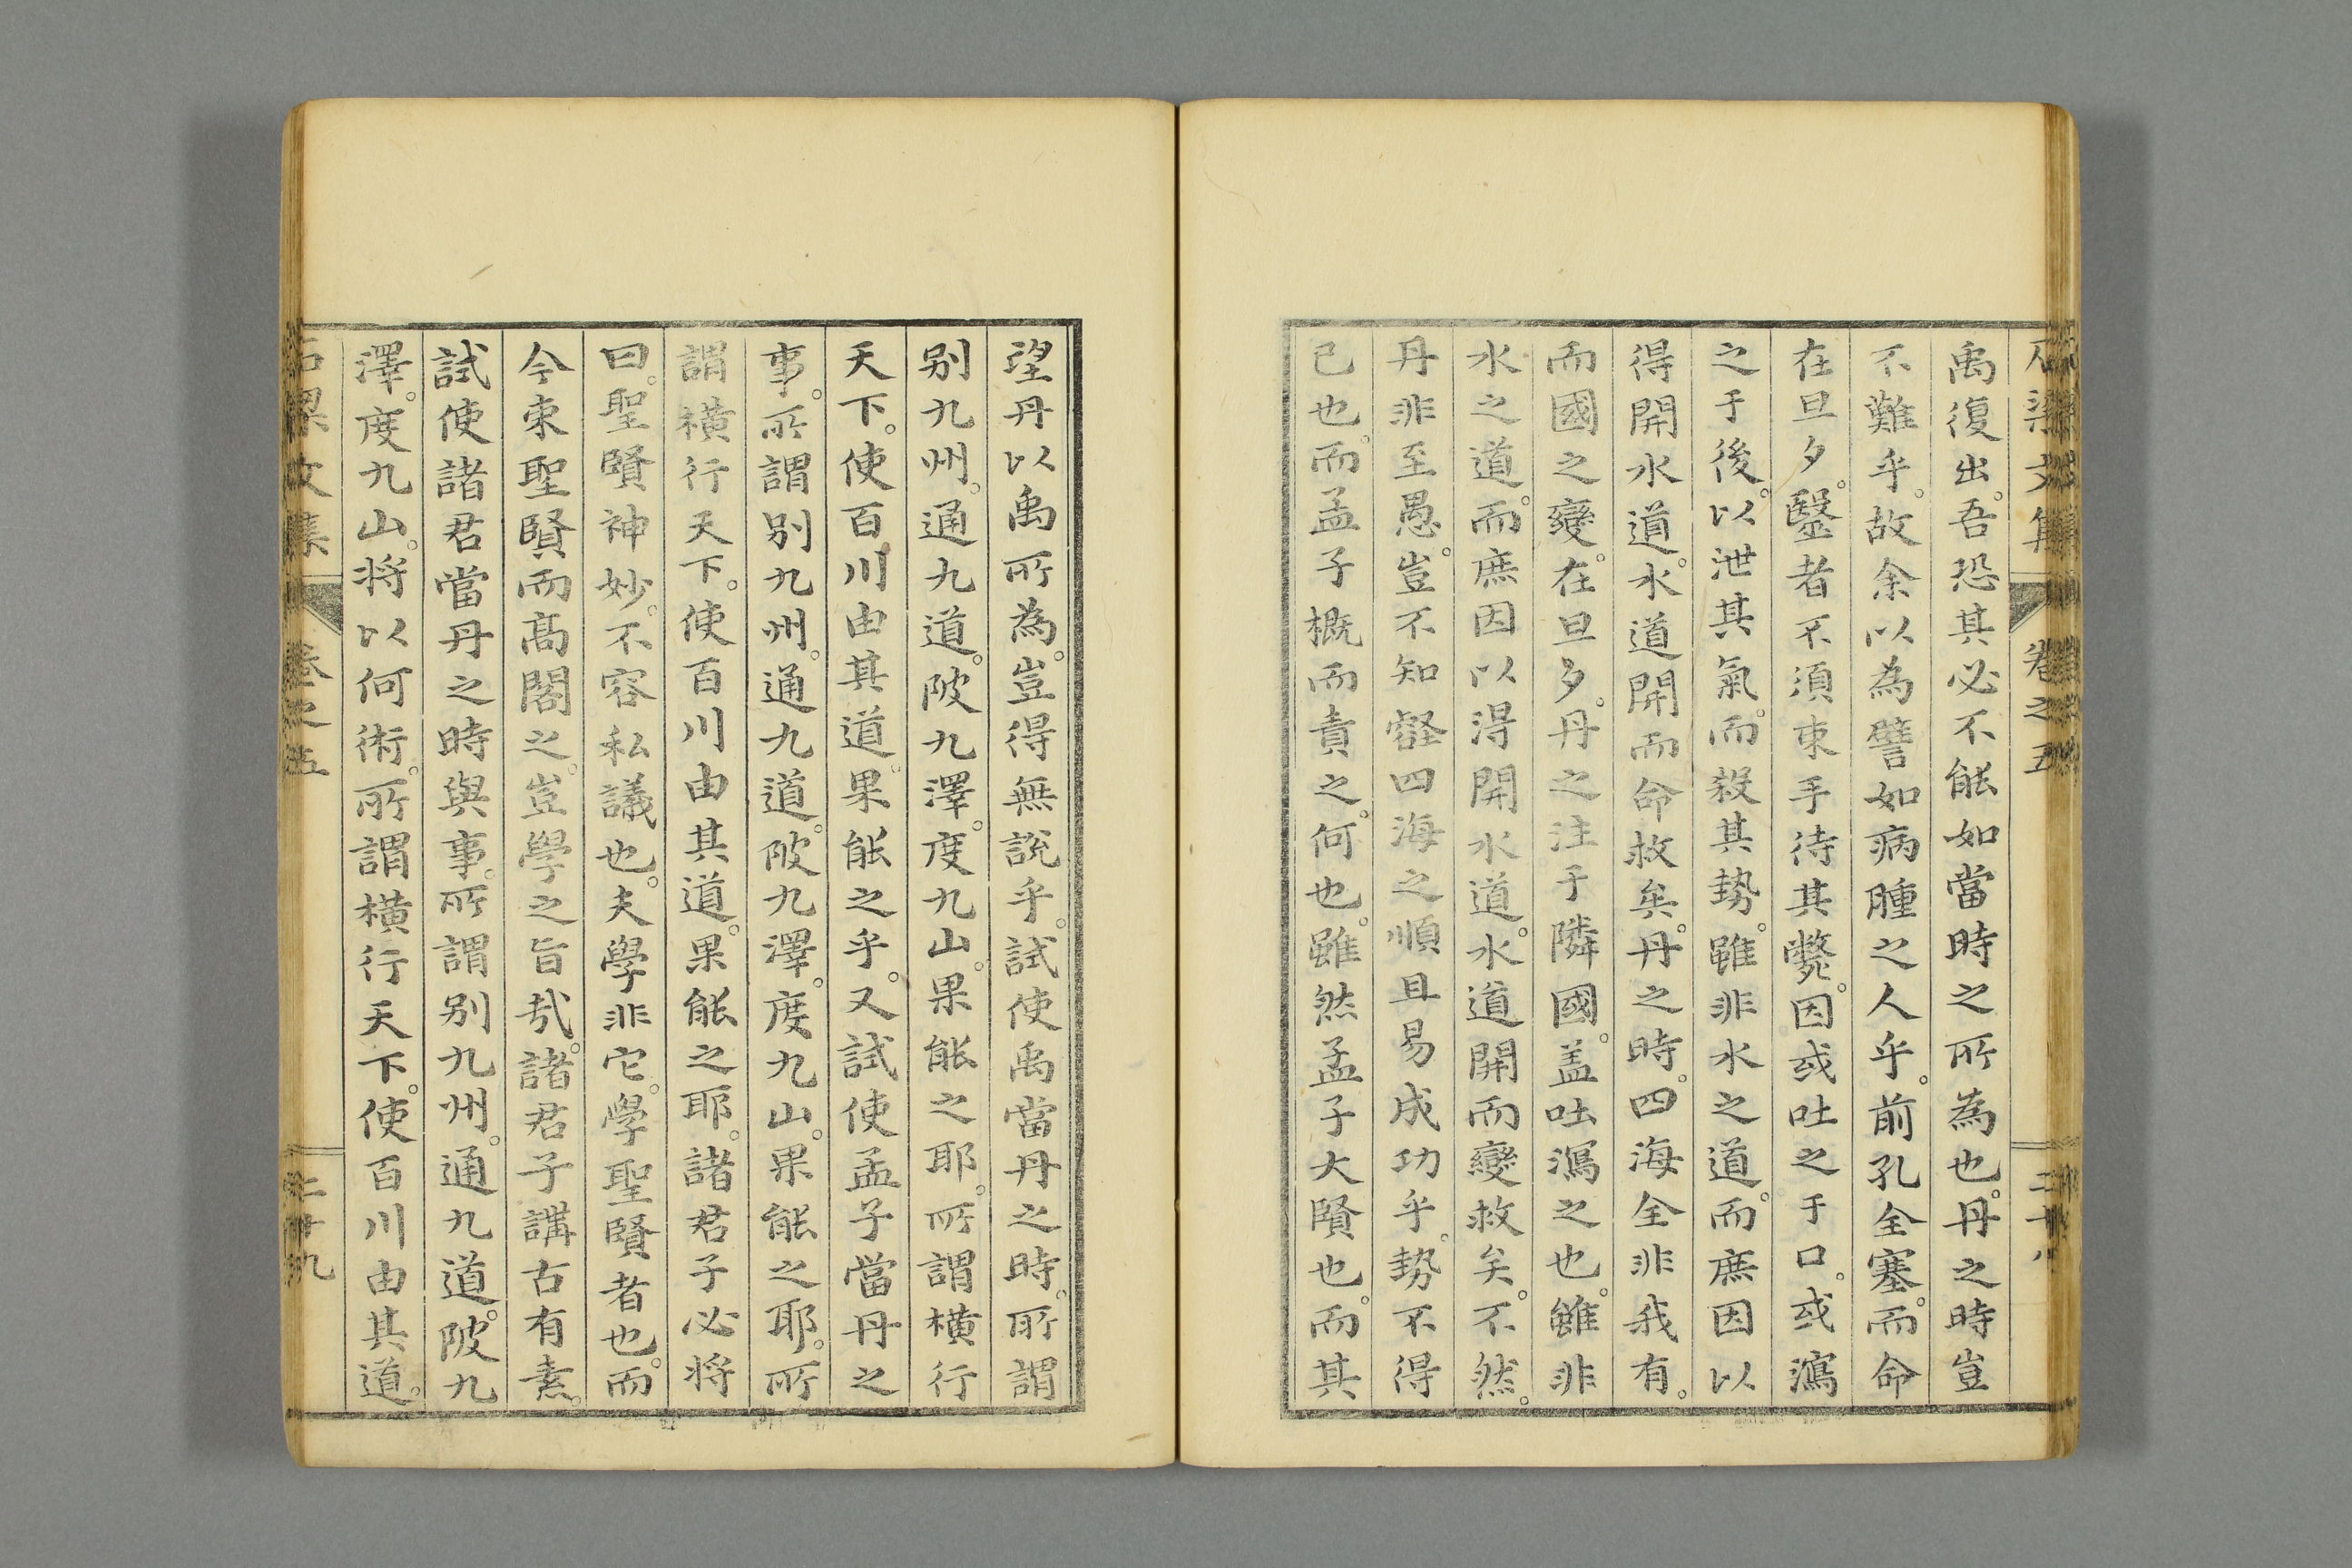 石梁文集 卷之五 二十八
禹復出。吾恐其必不能如當時之所為也。丹之時豈
不難乎。故余以為譬如病腫之人乎。前孔全塞。而命
在旦夕。毉者不須束手待其斃。因或吐之于口。或瀉
之于後。以泄其氣。而殺其勢。雖非水之道。而庶因以
得開水道。水道開而命救矣。丹之時。四海全非我有。
而國之變。在旦夕。丹之注于隣國。盖吐瀉之也。雖非
水之道。而庶因以得開水道。水道開而變救矣。不然。
丹非至愚。豈不知壑四海之順且易成功乎。勢不得
已也。而孟子概而責之。何也。雖然孟子大賢也。而其
望丹以禹所為。豈得無說乎。試使禹當丹之時。所謂
別九州。通九道。陂九澤。度九山。果能之耶。所謂橫行
天下。使百川由其道。果能之乎。又試使孟子當丹之
事。所謂別九州。通九道。陂九澤。度九山。果能之耶。所
謂橫行天下。使百川由其道。果能之耶。諸君子必將
曰。聖賢神妙。不容私議也。夫學非它。學聖賢者也。而
今束聖賢而高閣之。豈學之旨哉。諸君子講古有素。
試使諸君當丹之時與事。所謂別九州。通九道。陂九
澤。度九山。將以何術。所謂橫行天下。使百川由其道。
石梁文集 卷之五 二十九